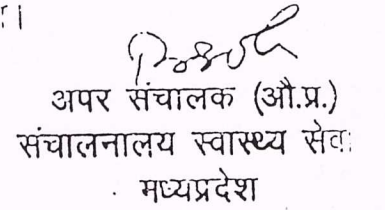 अपर संचालक (औ.प्र.)
संचालनालय स्वास्थ्य सेवा
मध्यप्रदेश